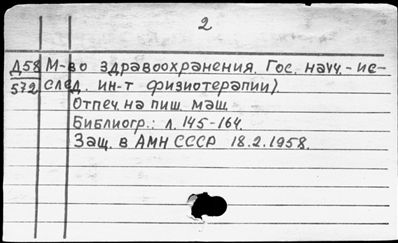 2
Д58 М-во здравоохранения. Гос. науч.-ис-
572 след. ин-т физиотерапии).
Отпеч. на пиш. маш.
Библиогр.: л. 145-164.
Защ. в АМН СССР 18.2.1958.